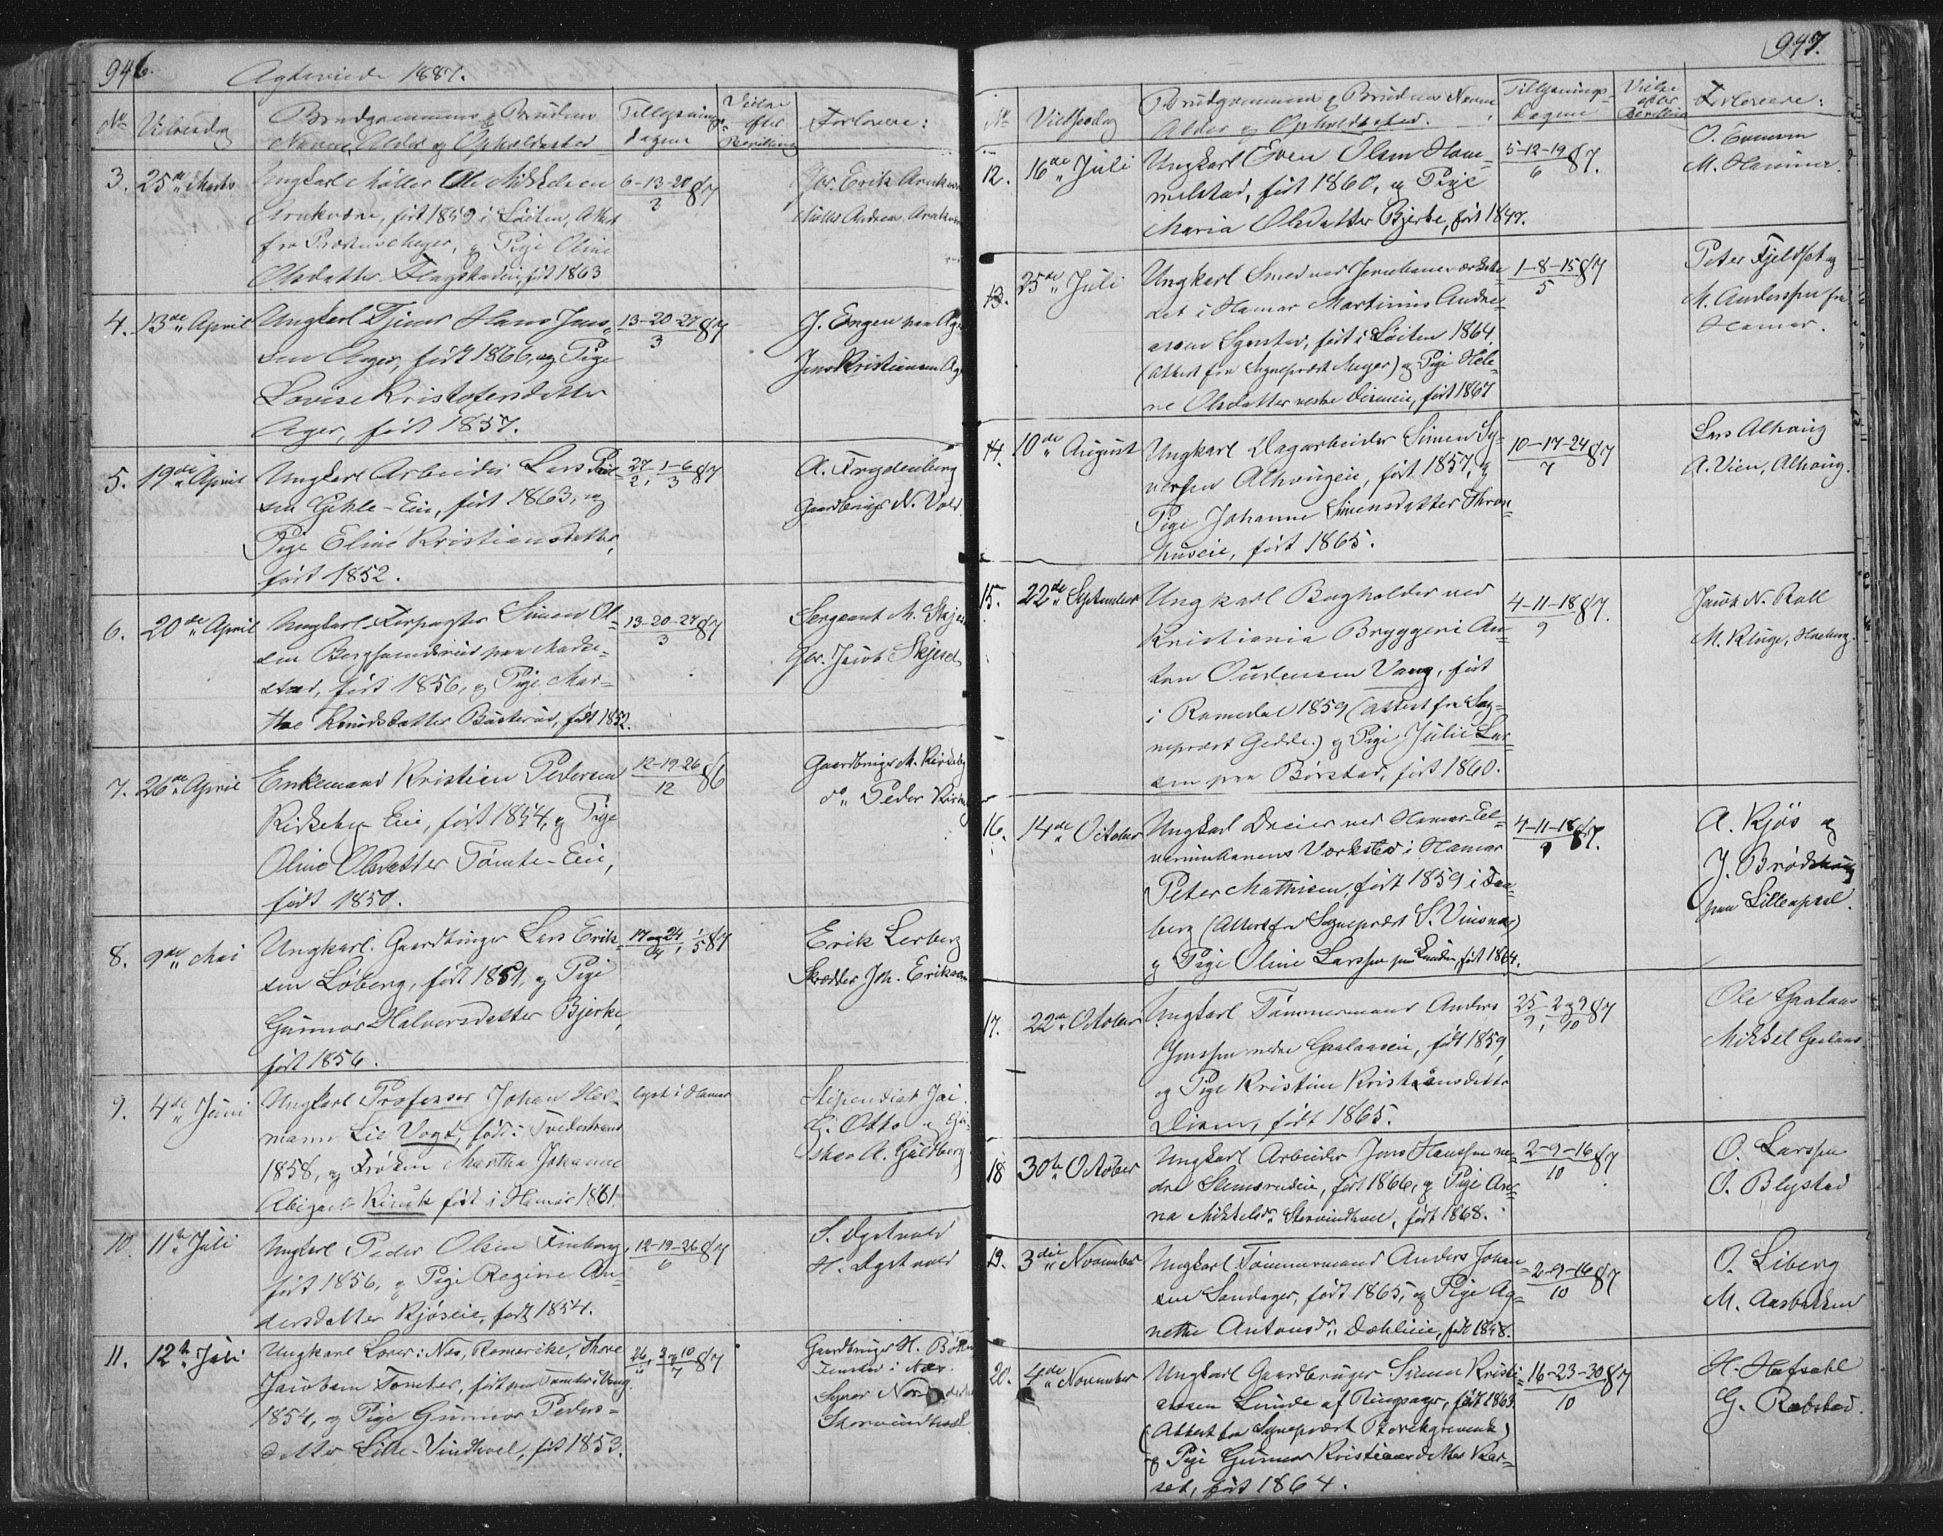 946.
Ægteviede 1887.
No
Vielsesdag
Brudgommens og Brudens
Navne, Alder og Opholdssted
Tillysnings-
dagene
Vielse
efter
Bevilling
Forlovere:
3. 25de Marts
Ungkarl Møller Ole Mikkelsen
Arnkværn, født 1859 i Løiten, Attest
fra Præsten Meyer, og Pige Oline
Olsdatter Flagstadeie, født 1863
6-13-20/2 87
Gbr. Erik Arnkværn
Andreas Arnkværn
4. 13de April
Ungkarl Tjener Hans Jens-
sen Ager, født 1866, og Pige
Lovise Kristofersdatter
Ager, født 1857.
13-20-27/3 87
J. Engen paa Ager
Jens Kristiansen Ager
5. 19de April
Ungkarl Arbeider Lars
sen Gihle-Eie, født 1863, og
Pige Eline Kristiansdatter,
født 1852.
27/2, 1-6/3 87
A. Frydenberg
Gaardbruger N. Vold
6. 20de April
Ungkarl Forpagter Simen Ol-
sen Bergsenderud paa
stad, født 1856, og Pige Mar-
the Knudsdatter Bústerud, født 1852.
13-20-27/3 87
Sergeant M. Skjes
Gbr. Jacob Skjeset
7. 26de April
Enkemand Kristian Pedersen
Kirkeby Eie, født 1854, og Pige
Oline Olsdatter Tomte-Eie,
født 1850.
12-19-26/12 86
Gaardbruger A. Kirkeby
do Peder Kirkeby
8. 9de Mai
Ungkarl. Gaardbruger Lars Erik-
sen Løberg, født 1851, og Pige
Gunnor Halvorsdatter Bjerke,
født 1856.
17 og 24/4, 1/5 87
Erik Løberg
Skrædder Joh. Eriksen
9. 4de Juni
Ungkarl Professor Johan Her-
mann Lie Vogt, født i Tvedestrand
1858, og Frøken Martha Johanne
Abigael Kinck født i Hamar 1861.
lyst i Hamar
Stipendiat Jac.
G. Otto og
A. Guldberg
10. 11te Juli
Ungkarl Peder Olsen Finborg,
født 1856, og Pige Regine An-
dersdatter Kjøseie, født 1854.
12-19-26/6 87
S. Dystvold
H. Dystvold
11. 12te Juli
Ungkarl Lærer i Næs, Romerike, Thore
Jacobsen Tomter, født paa Tomter i Vang
1854, og Pige Gunnor Peders-
datter Lille-Vindhoel, født 1853.
26/6, 3 og 10/7 87
Gaardbruger H.
i Næs.
Store Vindhoel
947.
No
Vielsesdag
Brudgommens og Brudens Navne
Alder og Opholdssted.
Tillysnings-
dagene
Vielse
efter
Bevilling
Forlovere:
12. 16de Juli
Ungkarl Even Olsen Ham-
melstad, født 1860, og Pige
Maria Olsdatter Bjerke, født 1847.
5-12-19/6 87.
O. Evensen
M. Hammer.
13. 25de Juli
Ungkarl Smed ved Jernbaneværkste-
det i Hamar Martinus Andre-
asen Lysestad, født i Løiten 1864,
(Attest fra Sognepræst Meyer) og Pige Hele-
ne Olsdatter nedre, født 1867
1-8-15/5 87
Peter Fjeldset og
M. Anderssen fra
Hamar.
14. 10de August
Ungkarl Dagarbeider Simen Sy-
versen Alhaugeie, født 1857, og
Pige Johanne Simensdatter Thron-
huseie, født 1865.
10-17-24/7 87
Lars Alhaug
A. Vien, Alhaug.
15. 22de September
Ungkarl Bogholder ved
Kristiania Bryggeri An-
ton Gudensen Vang, født
i Romedal 1859 (Attest fra Sog-
nepræst Gedde.) og Pige Julie Lar-
sen paa Børstad, født 1860.
4-11-18/9 87.
Jacob N. Roll
M. Kluge, Hneberg.
16. 14de October
Ungkarl Dreier ved Hamar-El-
verumbanens Værksted i Hamar
Peter Mathisen, født 1859 i Faa-
berg (Attest fra Sognepræst S. Vinsnes)
og Pige Oline Larssen paa Linden, født 1864.
4-11-18/9 87.
A. Kjøs og
J. Brødshaug
paa Lilleopsal.
17. 22de October
Ungkarl Tømmermand Anders
Jenssen nedre Gaalaaseie, født 1859,
og Pige Kristine Kristiansdatter
Disen, født 1865.
25/9, 2 og 9/10 87
Ole Gaalaas
Mikkel Gaalaas
18 30te October
Ungkarl Arbeider Jens Hanssen ne-
dre Stemsrudeie, født 1866, og Pige An-
na Mikkelsdr. Storvindhoel, født 1868.
2-9-16/10 87
O. Larssen
O. Blystad
19. 3die November
Ungkarl Tømmermand Anders Johan-
sen Sandager, født 1865, og Pige Ag-
nethe Antonsdr. Dæhlieie, født 1858.
2-9-16/10 87
O. Liberg
M. Aasbakken
20. 4de November
Ungkarl Gaardbruger Simen Kristi-
ansen Linde af Ringsager, født 1863
(Attest fra Sognepræst)
og Pige Gunnor Kristiansdatter Kor-
set, født 1864.
16-23-30/10 87
H. Hafsahl
G. Rabstad.